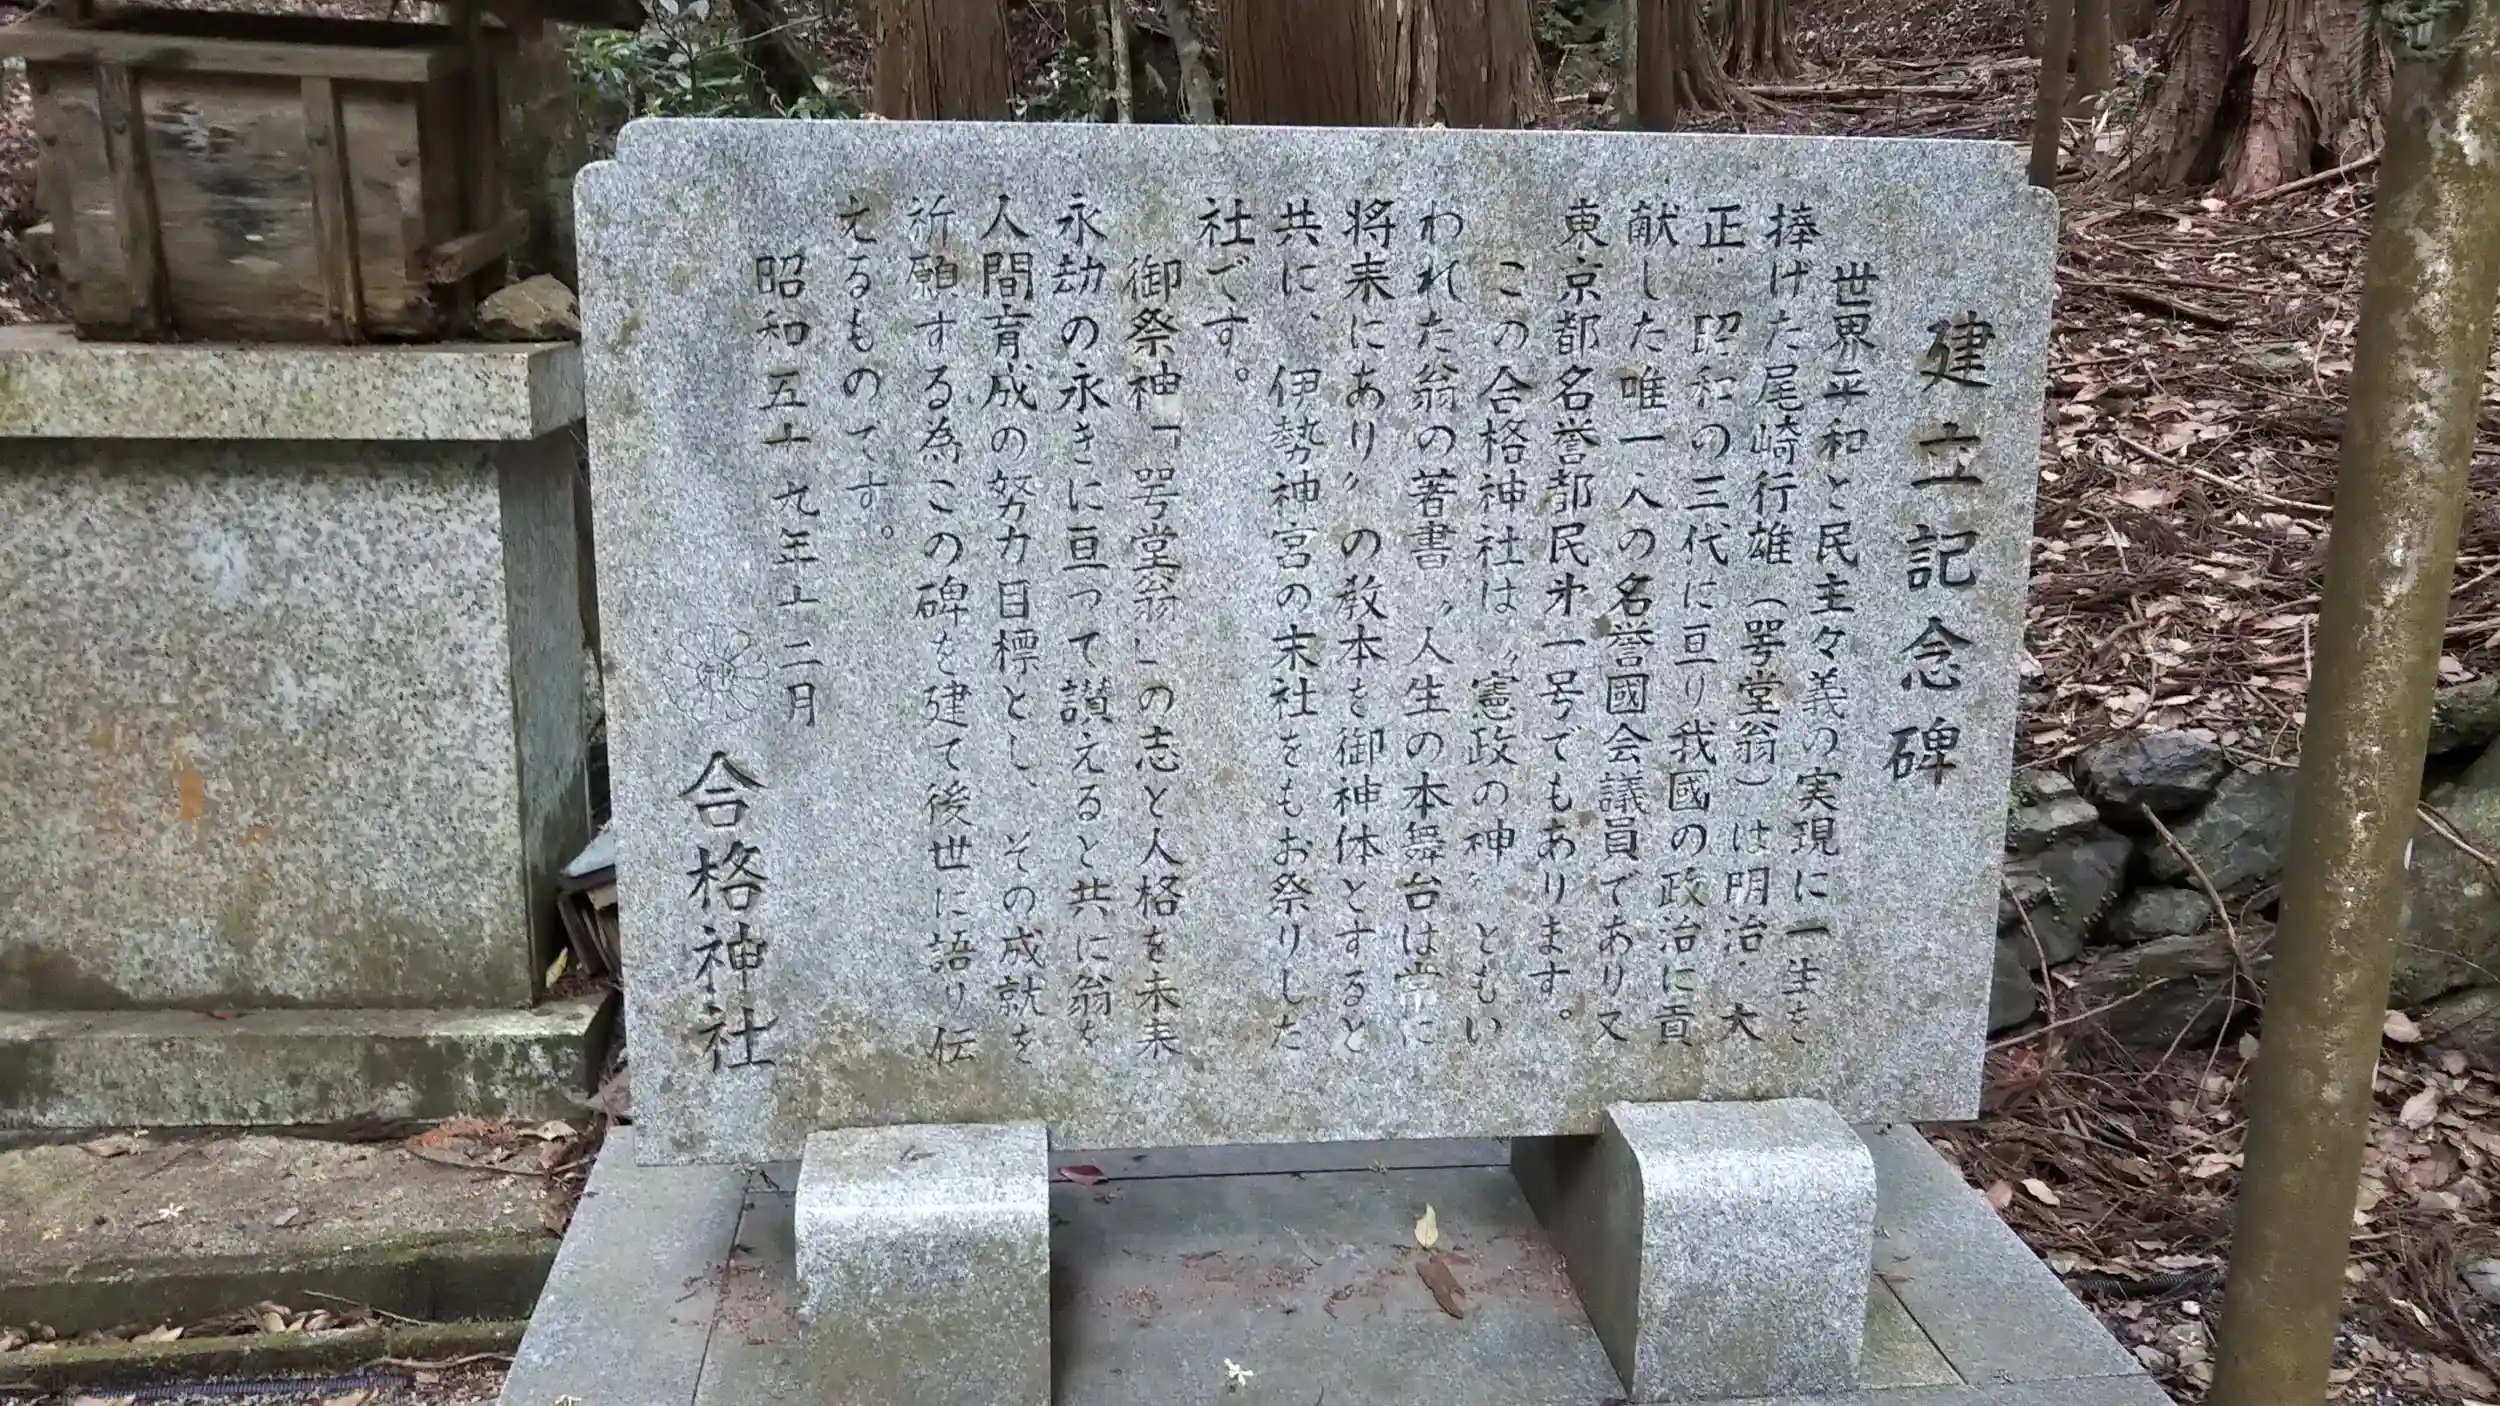 建立記念碑
世界平和と民主々義の実現に一生を
捧げた尾崎行雄（咢堂翁）は明治・大
正・昭和の三代に亘り我國の政治に貢
献した唯一人の名誉國会議員であり又
東京都名誉都民㐧一号でもあります。
この合格神社は〝憲政の神〟ともい
われた翁の著書〝人生の本舞台は常に
将来にあり〟の教本を御神体とすると
共に、伊勢神宮の末社をもお祭りした
社です。
御祭神「咢堂翁」の志と人格を未来
永劫の永きに亘って讃えると共に翁を
人間育成の努力目標とし、その成就を
祈願する為この碑を建て後世に語り伝
えるものです。
昭和五十九年十二月
合格神社